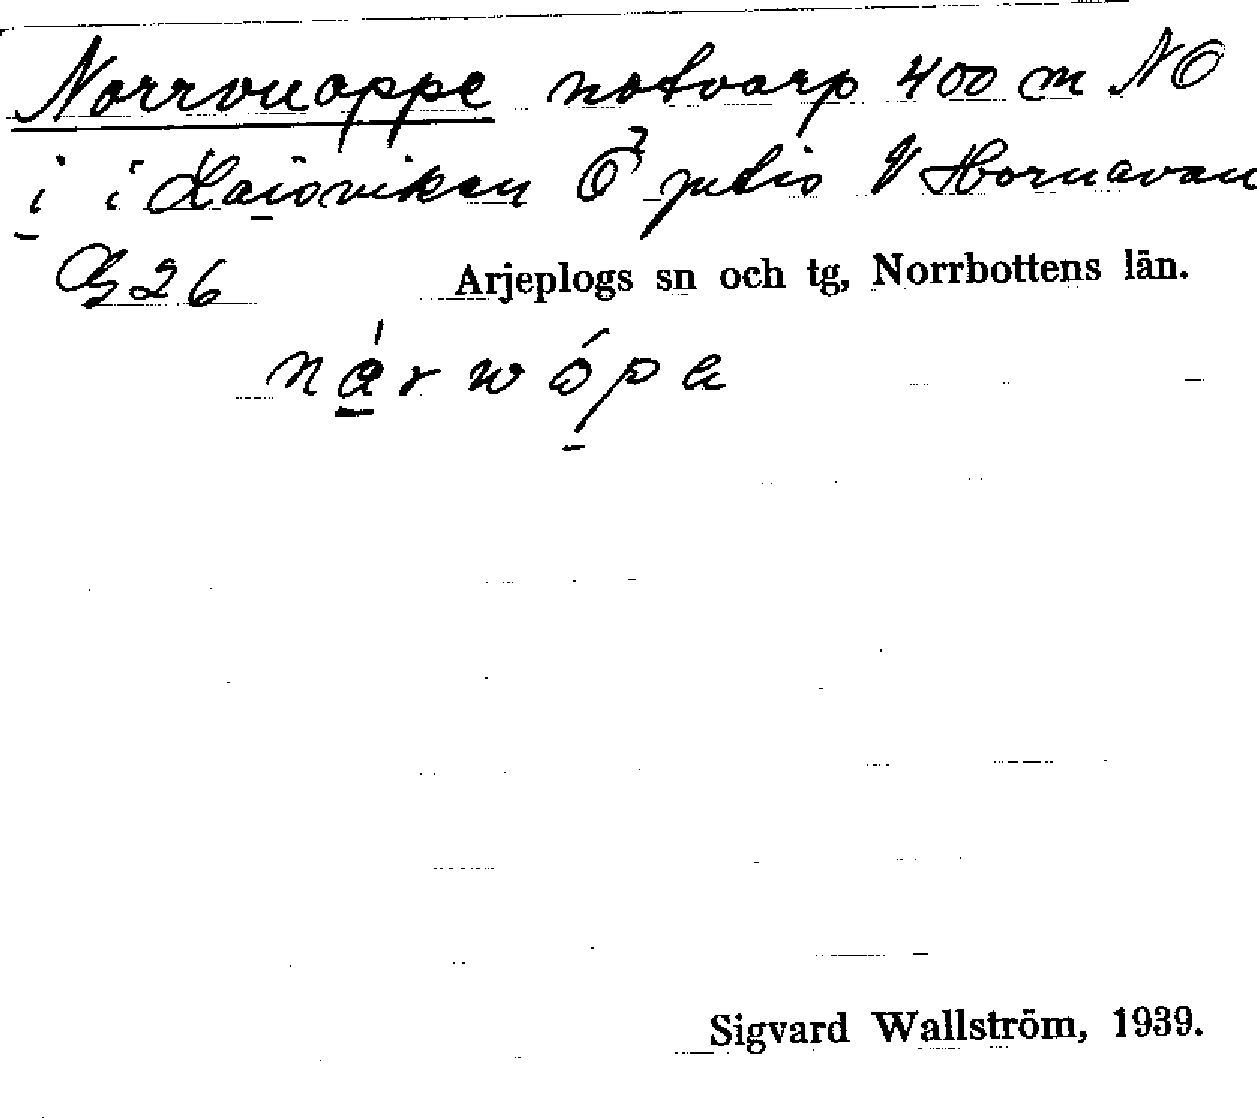 Norrvuoppe notvarp 400 m NO
i i Laisviken Ö Jutis V Hornavan
G 26 Arjeplogs sn och tg, Norrbottens län.
Sigvard Wallström, 1939.